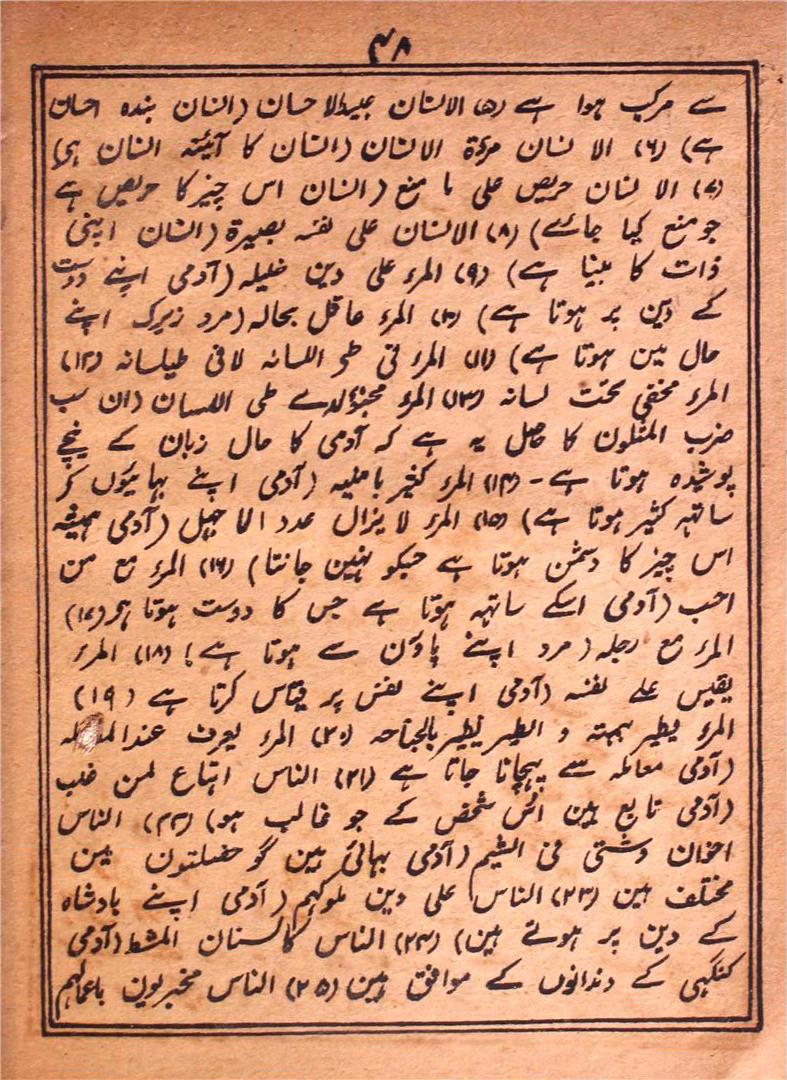 ۴۸
سے مرکب ہوا ہے (۵) الانسان عبید الاحسان (انسان بندہ احسان
ہے) (۶) الانسان مرءۃ الانسان (انسان کا آئینہ انسان ہی)
(۷) الانسان حریص علی ما منع (انسان اس چیز کا حریص ہے
جو منع کیا جائے) (۸) الانسان علی نفسہ بصیرۃ (انسان اپنی
ذات کا بینا ہے) (۹) المرء علی دین خلیلہ (آدمی اپنے دوست
کے دین پر ہوتا ہے) (۱۰) المرء عاقل بحالہ (مرد زیرک اپنے
حال مین ہوتا ہے) (۱۱) المرء فی طی اللسانہ لافی طیلسانہ (۱۲)
المرء مخفی تحت لسانہ (۱۳) المرء طی اللسان (ان سب
ضرب المثلون کا حاصل یہ ہے کہ آدمی کا حال زبان کے نیچے
پوشیدہ ہوتا ہے۔ (۱۴) المرء کثیر باخیہ (آدمی اپنے بہائیوں کر
ساتہہ کثیر ہوتا ہے) (۱۵) المرء لا یزال عدد الماجہل (آدمی ہمیشہ
اس چیز کا دشمن ہوتا ہے جسکو نہین جانتا) (۱۶) المرء مع من
احب (آدمی اسکے ساتہہ ہوتا ہے جس کا دوست ہوتا ہو (۱۷)
المرء مع رجلہ (مرد اپنے پاؤن سے ہوتا ہے) (۱۸) المرء
یقیس علے نفسہ (آدمی اپنے نفس پر قیاس کرتا ہے (۱۹)
المرء یطیر بہمتہ و الطیر یطیر بالجناحہ (۲۰) المرء یعرف عند
(آدمی معاملہ سے پہچانا جاتا ہے (۲۱) الناس اتباع لمن غلب
(آدمی تابع ہین اُس شخص کے جو غالب ہو) (۲۲) الناس
اخوان وشتی فی الشیم (آدمی بہائی ہین گو خصلتون مین
مختلف ہین (۲۳) الناس علی دین ملوکہم (آدمی اپنے بادشاہ
کے دین پر ہوتے ہین) (۲۴) الناس کالسنان المشط (آدمی
کنگہی کے دندانوں کے موافق ہین (۲۵) الناس مخبریون باعمالہم